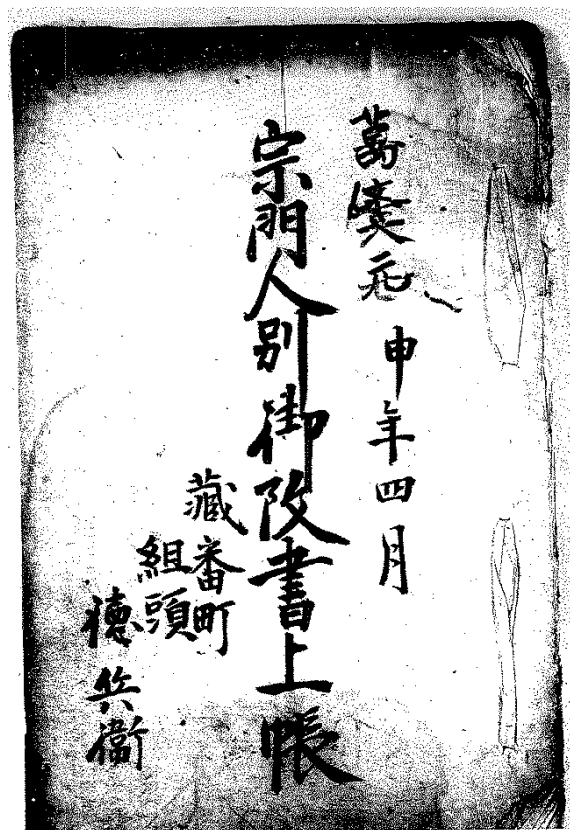 萬延元申年四月
宗門人別御改書上帳
藏番町
組頭
德兵衞